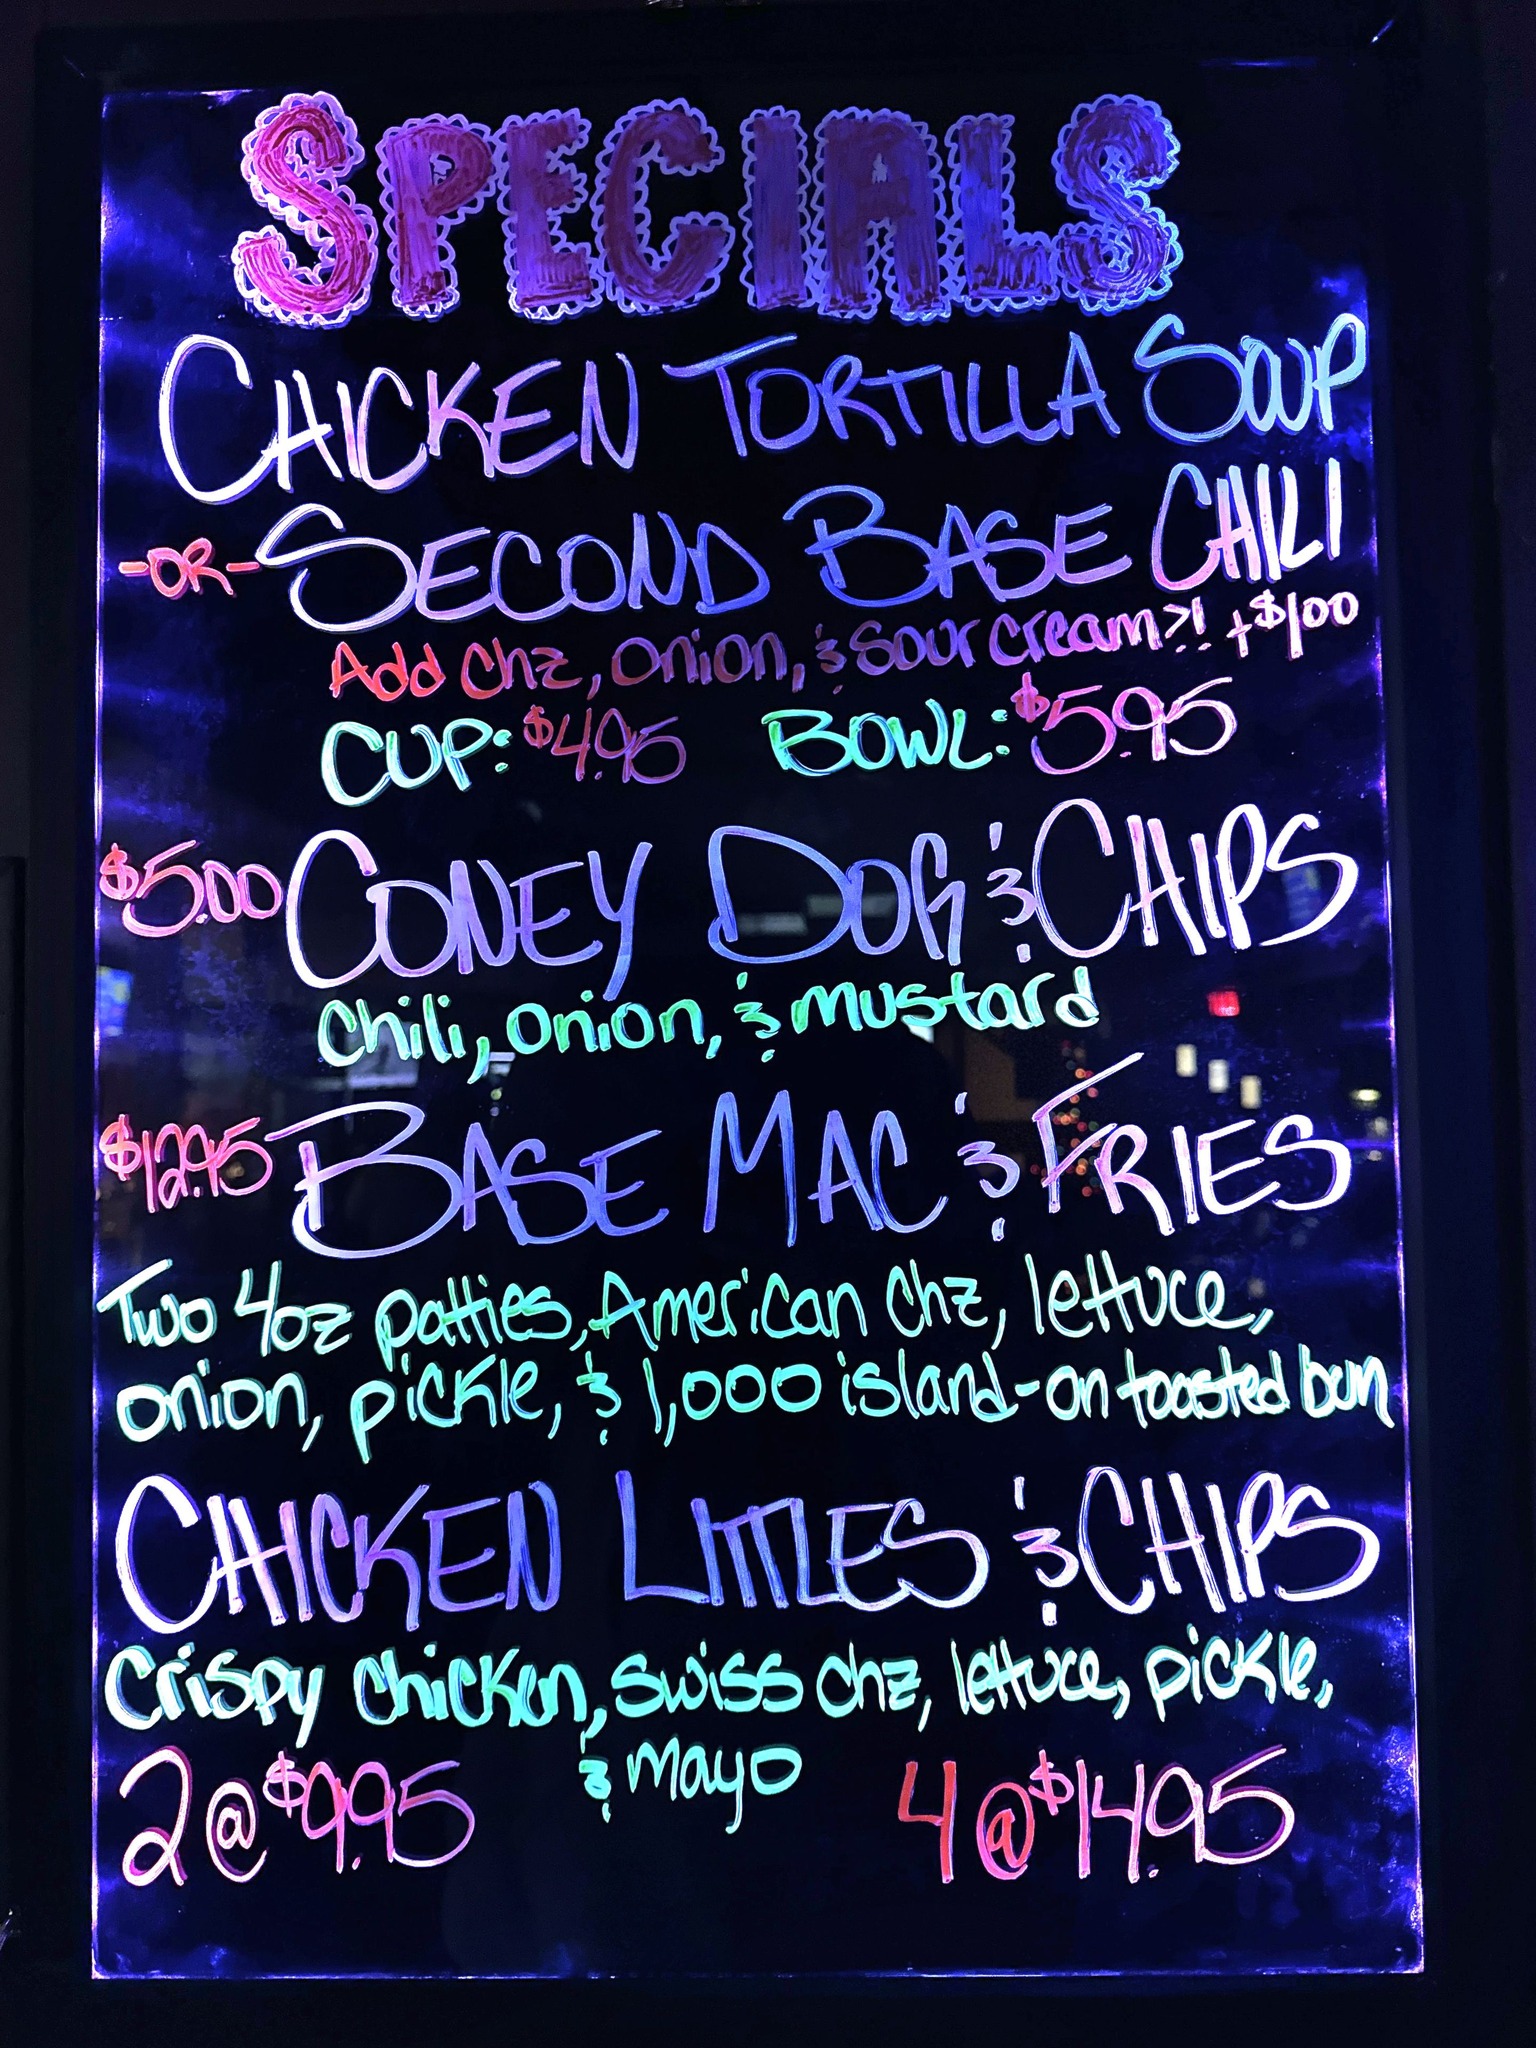 SPECIALS
CHICKEN TORTILLA SOUP
-OR- SECOND BASE CHILI
Add chz, onion, & sour cream?! +$1.00
CUP: $4.95 BOWL: $5.95
$5.00 CONEY DOG & CHIPS
Chili, onion, & mustard
$12.95 BASE MAC & FRIES
Two 4oz patties, American chz, lettuce,
onion, pickle, & 1,000 island-on toasted bun
CHICKEN LITTLES & CHIPS
Crispy chicken, swiss chz, lettuce, pickle,
& mayo
2 @ $9.95 4 @ $14.95